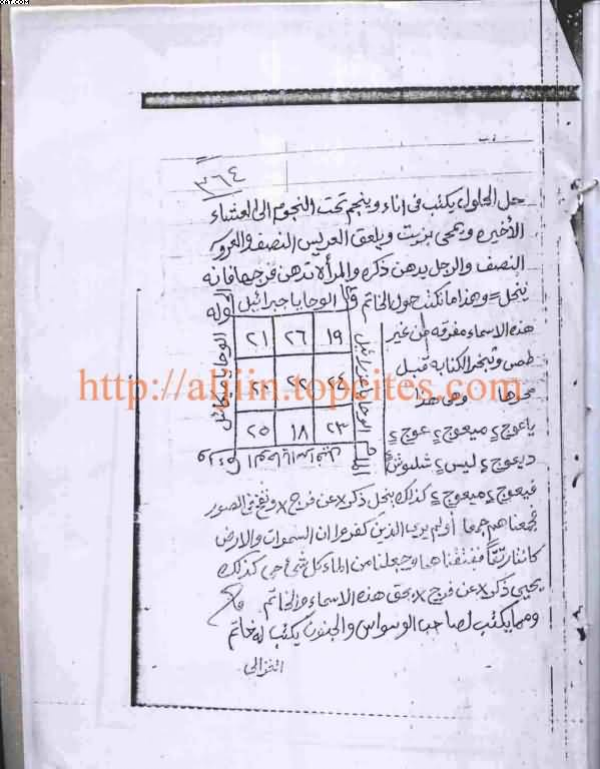 ٣٦٤
حل المحلول يكتب فى اناء وينجم تحت النجوم الى العشاء
الأخيره ويمحى بزيت ويلعق العريس النصف والعروسه
النصف والرجل يدهن ذكره والمرأة تدهن فرجها فانه
ينحل وهذا ما تكتب حول الخاتم
الوحا يا جبرائيل
هذه الاسماء مفرقه من غير
طمس وتبخر الكتابه قبل
محوها وهى هذا
٢١ ٢٦ ١٩
٢٢ ٢٤
٢٥ ١٨ ٢٣
الوحا يا
ياعوج ميعوج عوج
ديعوج ليس شلبوش
فيعوج ميعوج كذلك ينحل ذكر x عن فرج x ونفخ فى الصور
فجمعناهم جمعا أولم يرى الذين كفروا ان السموات والارض
كانتا رتقا ففتقناهما وجعلنا من الماء كل شئ حى كذلك
يحيى ذكر x عن فرج x بحق هذه الاسماء والخاتم
ومما يكتب لصاحب الوسواس والجنون يكتب له خاتم
الغزالى
http://aljiin.topcites.com